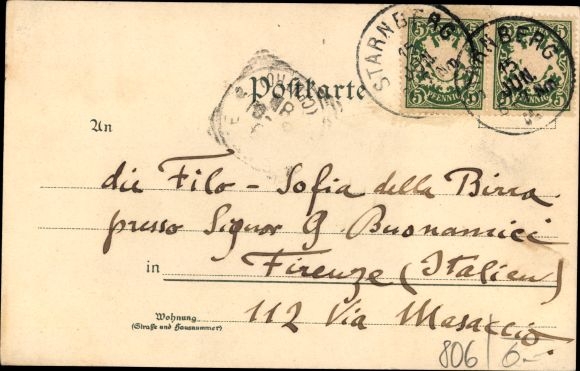 STARNBERG
STARNBERG
JUN.
5 5 5 5
PFENNIG PFENNIG
Postkarte
An
die Filo - Sofia della Birra
presso Signor G Buonamici
in Firenze (Italien)
Wohnung
(Straße und Hausnummer)
112 Via Masaccio.
806 6.-